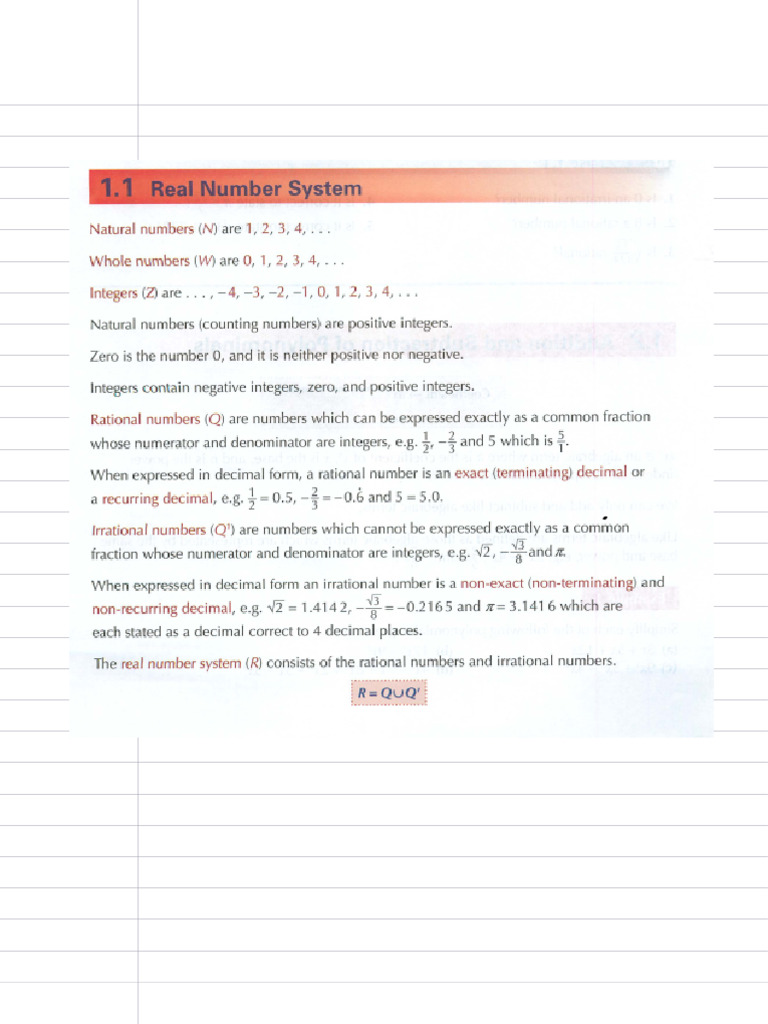 1.1 Real Number System
Natural numbers (N) are 1, 2, 3, 4, . . .
Whole numbers (W) are 0, 1, 2, 3, 4, . . .
Integers (Z) are . . . , −4, −3, −2, −1, 0, 1, 2, 3, 4, . . .
Natural numbers (counting numbers) are positive integers.
Zero is the number 0, and it is neither positive nor negative.
Integers contain negative integers, zero, and positive integers.
Rational numbers (Q) are numbers which can be expressed exactly as a common fraction
whose numerator and denominator are integers, e.g. 1/2, −2/3 and 5 which is 5/1.
When expressed in decimal form, a rational number is an exact (terminating) decimal or
a recurring decimal, e.g. 1/2 = 0.5, −2/3 = −0.6̇ and 5 = 5.0.
Irrational numbers (Q') are numbers which cannot be expressed exactly as a common
fraction whose numerator and denominator are integers, e.g. √2, −√3/8 and π.
When expressed in decimal form an irrational number is a non-exact (non-terminating) and
non-recurring decimal, e.g. √2 = 1.414 2, −√3/8 = −0.216 5 and π = 3.141 6 which are
each stated as a decimal correct to 4 decimal places.
The real number system (R) consists of the rational numbers and irrational numbers.
R = Q∪Q'